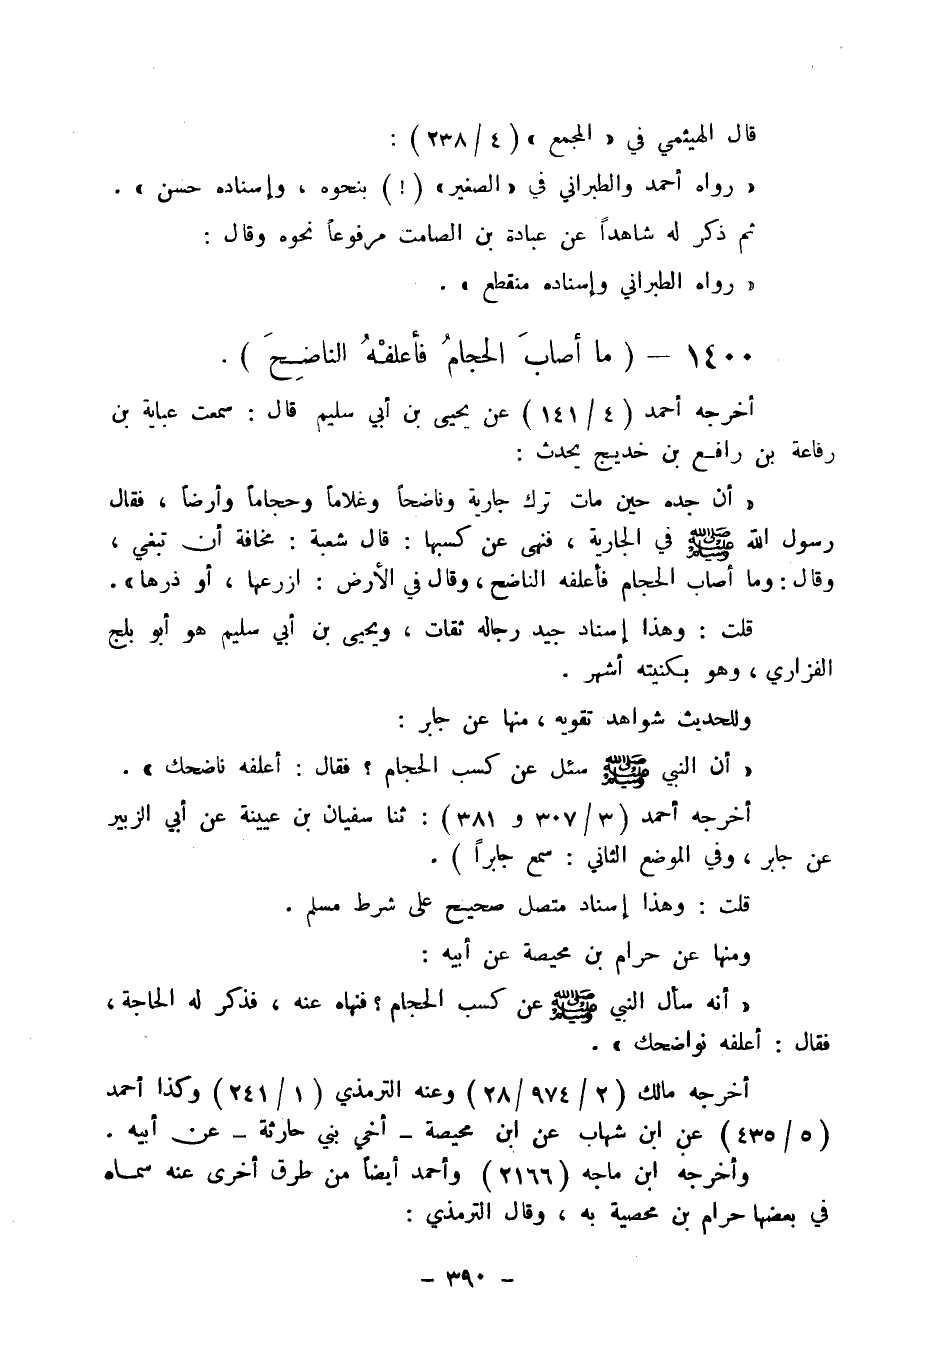 قال الهيثمي في « المجمع » ( ٤ / ٢٣٨ ) :
« رواه أحمد والطبراني في « الصغير » ( ! ) بنحوه ، وإسناده حسن » .
ثم ذكر له شاهداً عن عبادة بن الصامت مرفوعاً نحوه وقال :
« رواه الطبراني وإسناده منقطع » .
١٤٠٠ – ( ما أصابَ الحجامُ فأعلفْهُ الناضِحَ ) .
أخرجه أحمد ( ٤ / ١٤١ ) عن يحيى بن أبي سليم قال : سمعت عباية بن
رفاعة بن رافع بن خديج يحدث :
« أن جده حين مات ترك جارية وناضحاً وغلاماً وحجاماً وأرضاً ، فقال
رسول الله ﷺ في الجارية ، فنهى عن كسبها : قال شعبة : مخافة أن تبغي ،
وقال : وما أصاب الحجام فأعلفه الناضح ، وقال في الأرض : ازرعها ، أو ذرها » .
قلت : وهذا إسناد جيد رجاله ثقات ، ويحيى بن أبي سليم هو أبو بلج
الفزاري ، وهو بكنيته أشهر .
وللحديث شواهد تقويه ، منها عن جابر :
« أن النبي ﷺ سئل عن كسب الحجام ؟ فقال : أعلفه ناضحك » .
أخرجه أحمد ( ٣ / ٣٠٧ و ٣٨١ ) : ثنا سفيان بن عيينة عن أبي الزبير
عن جابر ، وفي الموضع الثاني : سمع جابراً ) .
قلت : وهذا إسناد متصل صحيح على شرط مسلم .
ومنها عن حرام بن محيصة عن أبيه :
« أنه سأل النبي ﷺ عن كسب الحجام ؟ فنهاه عنه ، فذكر له الحاجة ،
فقال : أعلفه نواضحك » .
أخرجه مالك ( ٢ / ٩٧٤ / ٢٨ ) وعنه الترمذي ( ١ / ٢٤١ ) وكذا أحمد
( ٥ / ٤٣٥ ) عن ابن شهاب عن ابن محيصة – أخي بني حارثة – عن أبيه .
وأخرجه ابن ماجه ( ٢١٦٦ ) وأحمد أيضاً من طرق أخرى عنه سماه
في بعضها حرام بن محصية به ، وقال الترمذي :
– ٣٩٠ –